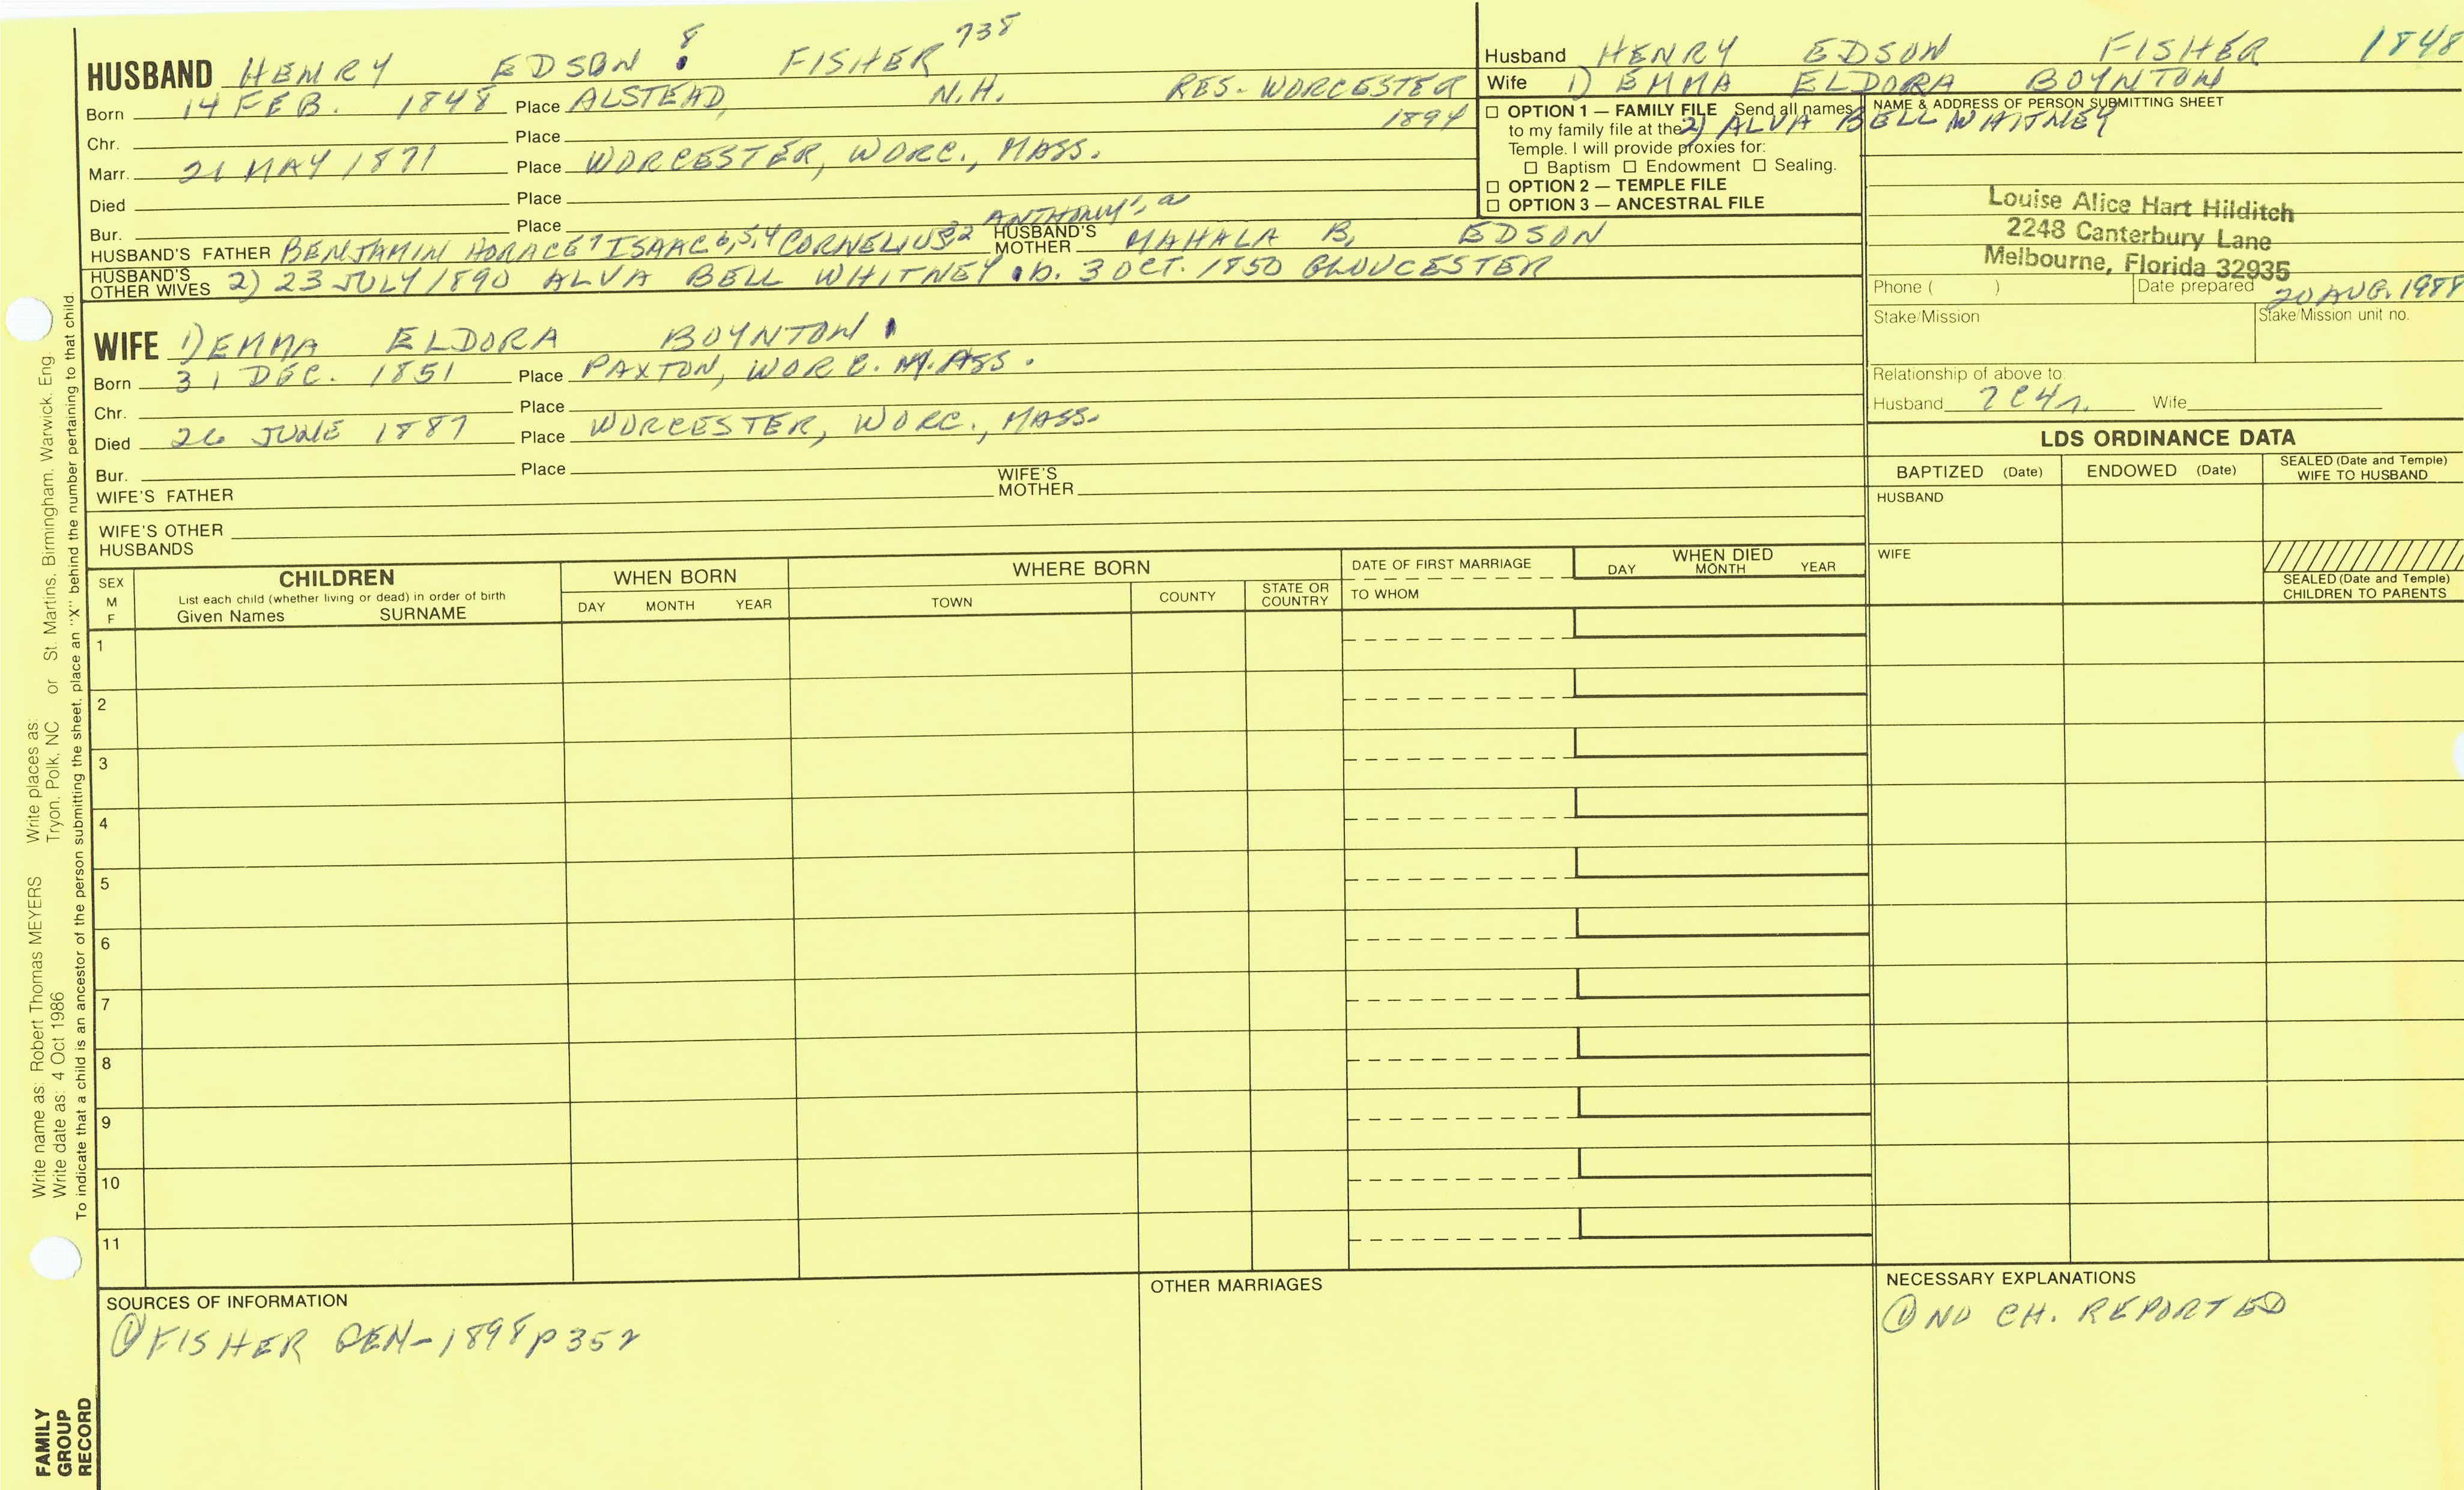 HUSBAND HENRY EDSON 8 FISHER 738
Born 14 FEB. 1848 Place ALSTEAD, N.H. RES. WORCESTER 1894
Chr. Place
Marr. 21 MAY 1871 Place WORCESTER, WORC., MASS.
Died Place
Bur. Place
HUSBAND'S FATHER BENJAMIN HORACE 7 ISAAC 6,5,4 CORNELIUS 3,2 ANTHONY 1, HUSBAND'S MOTHER MAHALA B. EDSON
HUSBAND'S OTHER WIVES 2) 23 JULY 1890 ALVA BELL WHITNEY b. 3 OCT. 1850 GLOUCESTER
WIFE 1) EMMA ELDORA BOYNTON
Born 31 DEC. 1851 Place PAXTON, WORC. MASS.
Chr. Place
Died 26 JUNE 1887 Place WORCESTER, WORC., MASS.
Bur. Place
WIFE'S FATHER WIFE'S MOTHER
WIFE'S OTHER HUSBANDS
Husband HENRY EDSON FISHER 1848
Wife 1) EMMA ELDORA BOYNTON
2) ALVA BELL WHITNEY
☐ OPTION 1 — FAMILY FILE Send all names
to my family file at the
Temple. I will provide proxies for:
☐ Baptism ☐ Endowment ☐ Sealing.
☐ OPTION 2 — TEMPLE FILE
☐ OPTION 3 — ANCESTRAL FILE
NAME & ADDRESS OF PERSON SUBMITTING SHEET
Louise Alice Hart Hilditch
2248 Canterbury Lane
Melbourne, Florida 32935
Phone ( ) Date prepared 20 AUG. 1988
Stake/Mission Stake/Mission unit no.
Relationship of above to:
Husband 7C4r. Wife
LDS ORDINANCE DATA
BAPTIZED (Date) ENDOWED (Date) SEALED (Date and Temple) WIFE TO HUSBAND
HUSBAND
WIFE
SEALED (Date and Temple) CHILDREN TO PARENTS
SEX M F
CHILDREN
List each child (whether living or dead) in order of birth
Given Names SURNAME
WHEN BORN
DAY MONTH YEAR
WHERE BORN
TOWN COUNTY STATE OR COUNTRY
DATE OF FIRST MARRIAGE
TO WHOM
WHEN DIED
DAY MONTH YEAR
1
2
3
4
5
6
7
8
9
10
11
SOURCES OF INFORMATION
① FISHER GEN-1898 p 352
OTHER MARRIAGES
NECESSARY EXPLANATIONS
① NO CH. REPORTED
Write name as: Robert Thomas MEYERS Write places as: or St. Martins, Birmingham, Warwick, Eng
Write date as: 4 Oct 1986 Tryon, Polk, NC
To indicate that a child is an ancestor of the person submitting the sheet, place an "X" behind the number pertaining to that child.
FAMILY
GROUP
RECORD